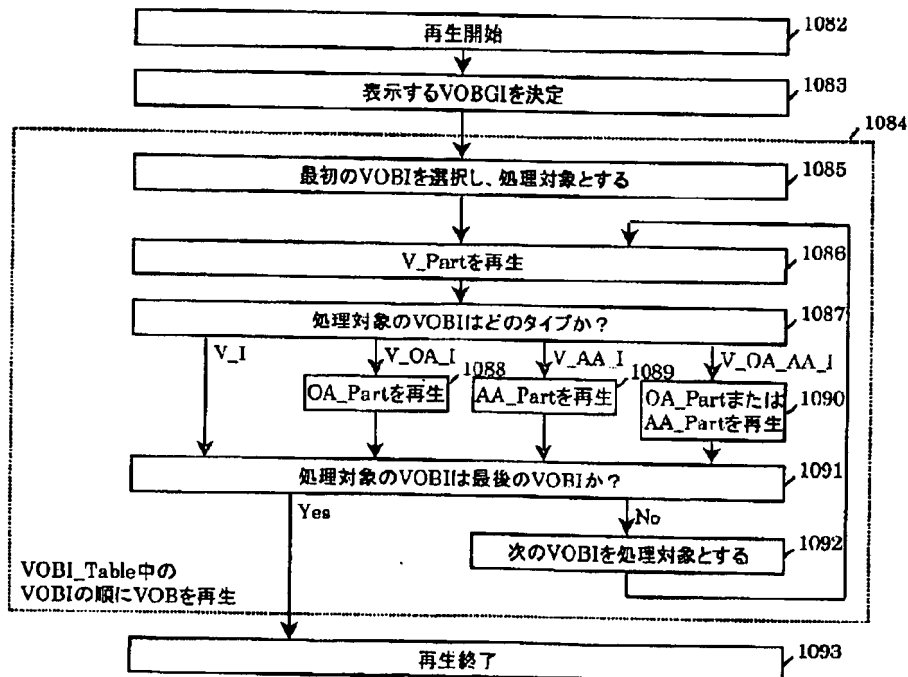 再生開始
1082
表示するVOBGIを決定
1083
1084
最初のVOBIを選択し、処理対象とする
1085
V_Partを再生
1086
処理対象のVOBIはどのタイプか？
1087
V_I
V_OA_I
V_AA_I
V_OA_AA_I
1088
OA_Partを再生
1089
AA_Partを再生
OA_Partまたは
AA_Partを再生
1090
処理対象のVOBIは最後のVOBIか？
1091
Yes
No
次のVOBIを処理対象とする
1092
VOBI_Table中の
VOBIの順にVOBを再生
再生終了
1093